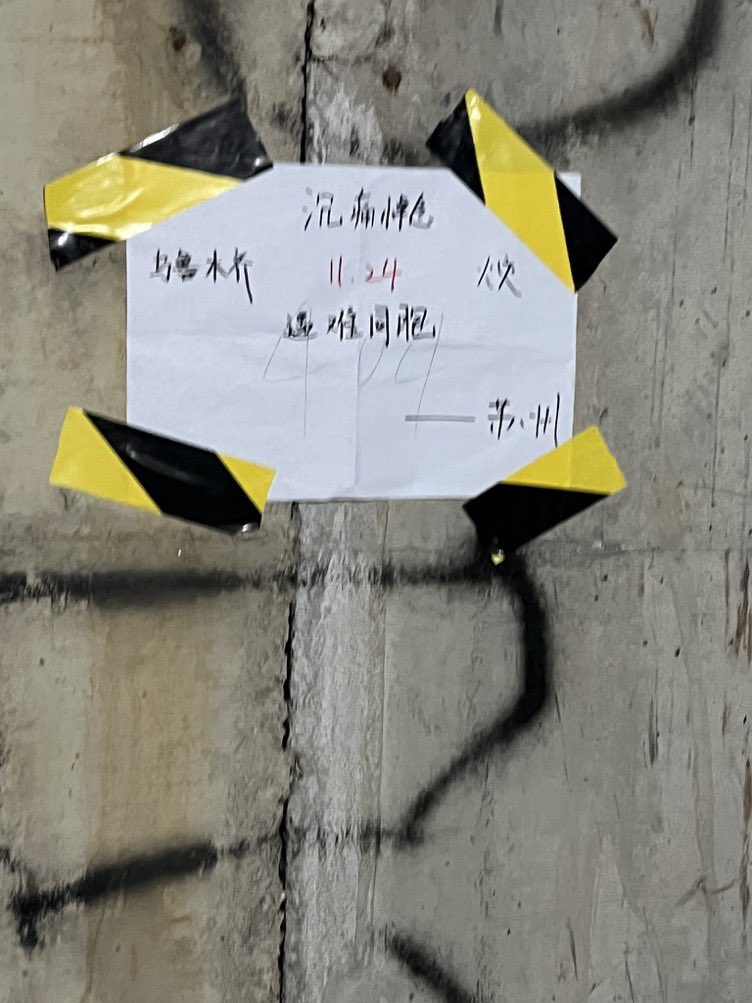 沉痛悼念
乌鲁木齐 11.24 火灾
遇难同胞
404
——苏州